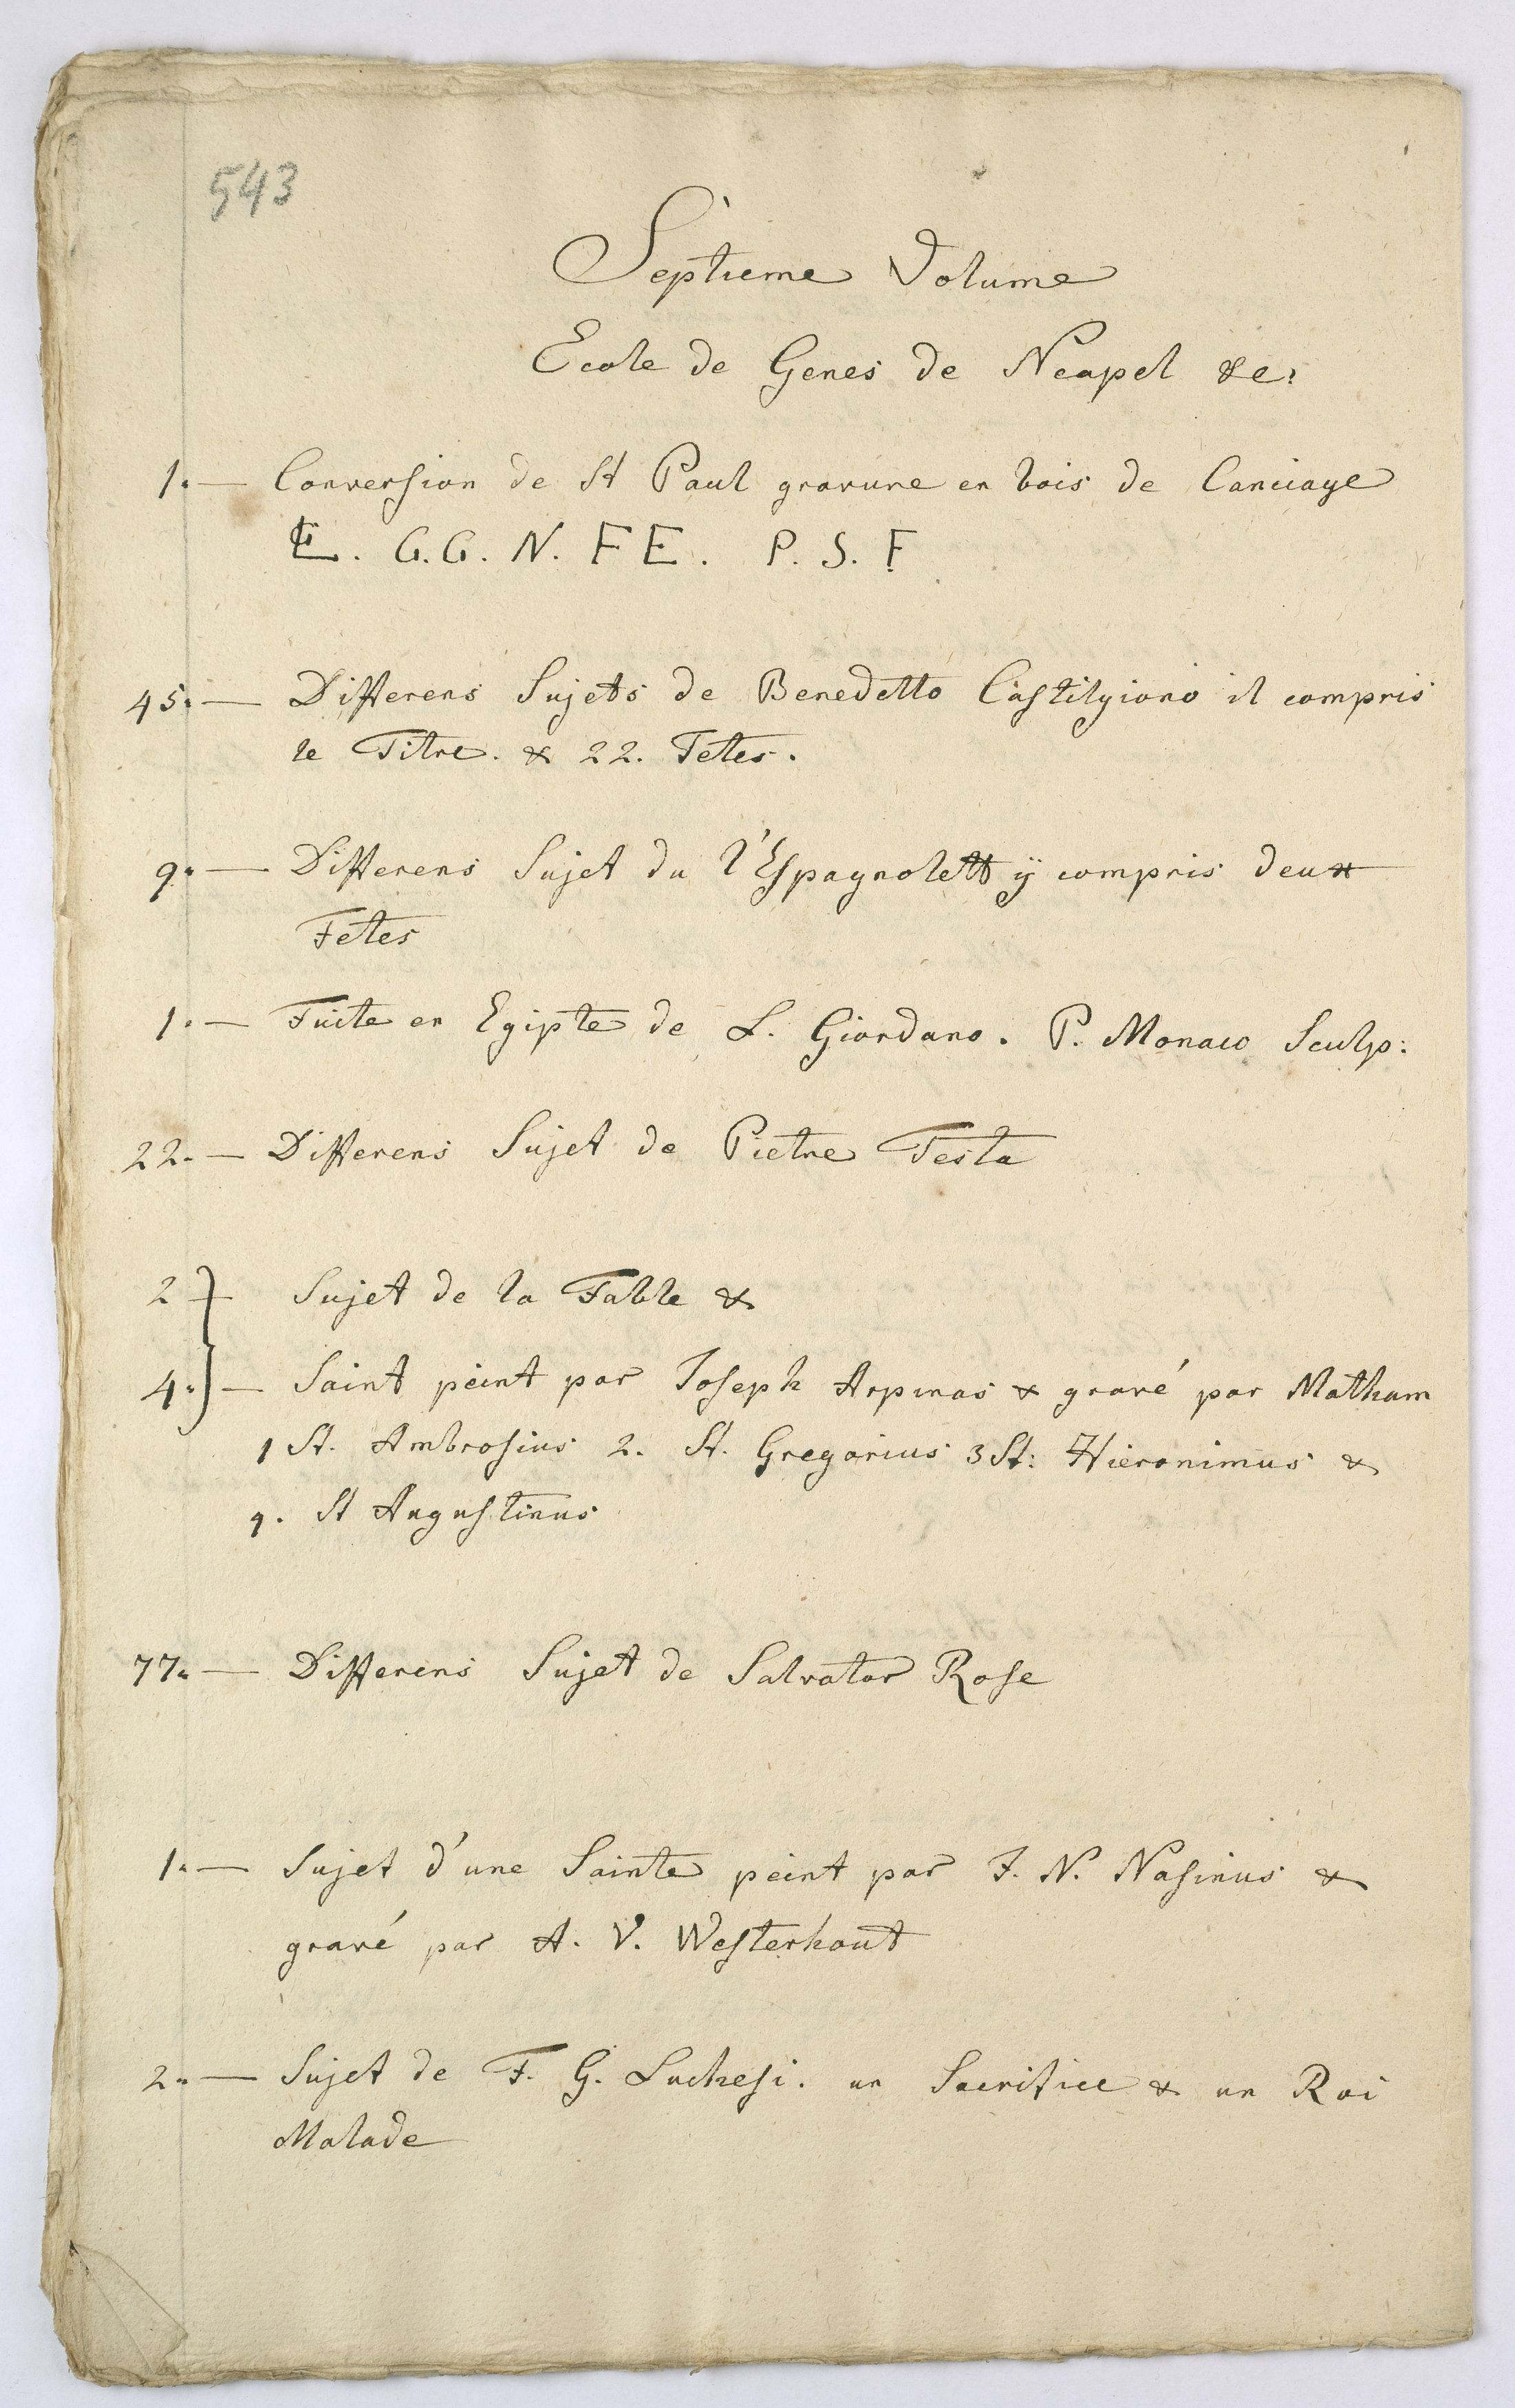 543
Septieme Volume
Ecole de Genes de Neapel &c:
1. — Conversion de St Paul gravure en bois de Canciaye
E. G.G. N. FE. P. S. F
45. — Differens Sujets de Benedetto Castilgiono il compris
le Titre. & 22. Tetes.
9. — Differens Sujet du l'Espagnolett ÿ compris deux
Tetes
1. — Fuite en Egipte de L. Giordano. P. Monaco Sculp:
22. — Differens Sujet de Pietre Testa
2 — Sujet de la Fable &
4. — Saint peint par Joseph Arpinas & gravé par Matham
1 St. Ambrosius 2. St. Gregorius 3 St: Hieronimus &
4. St Augustinus
77. — Differens Sujet de Salvator Rose
1. — Sujet d'une Sainte peint par J. N. Nasinus &
gravé par A. V. Westerhout
2. — Sujet de F. G. Luchesi. un Sacrifice & un Roi
Malade